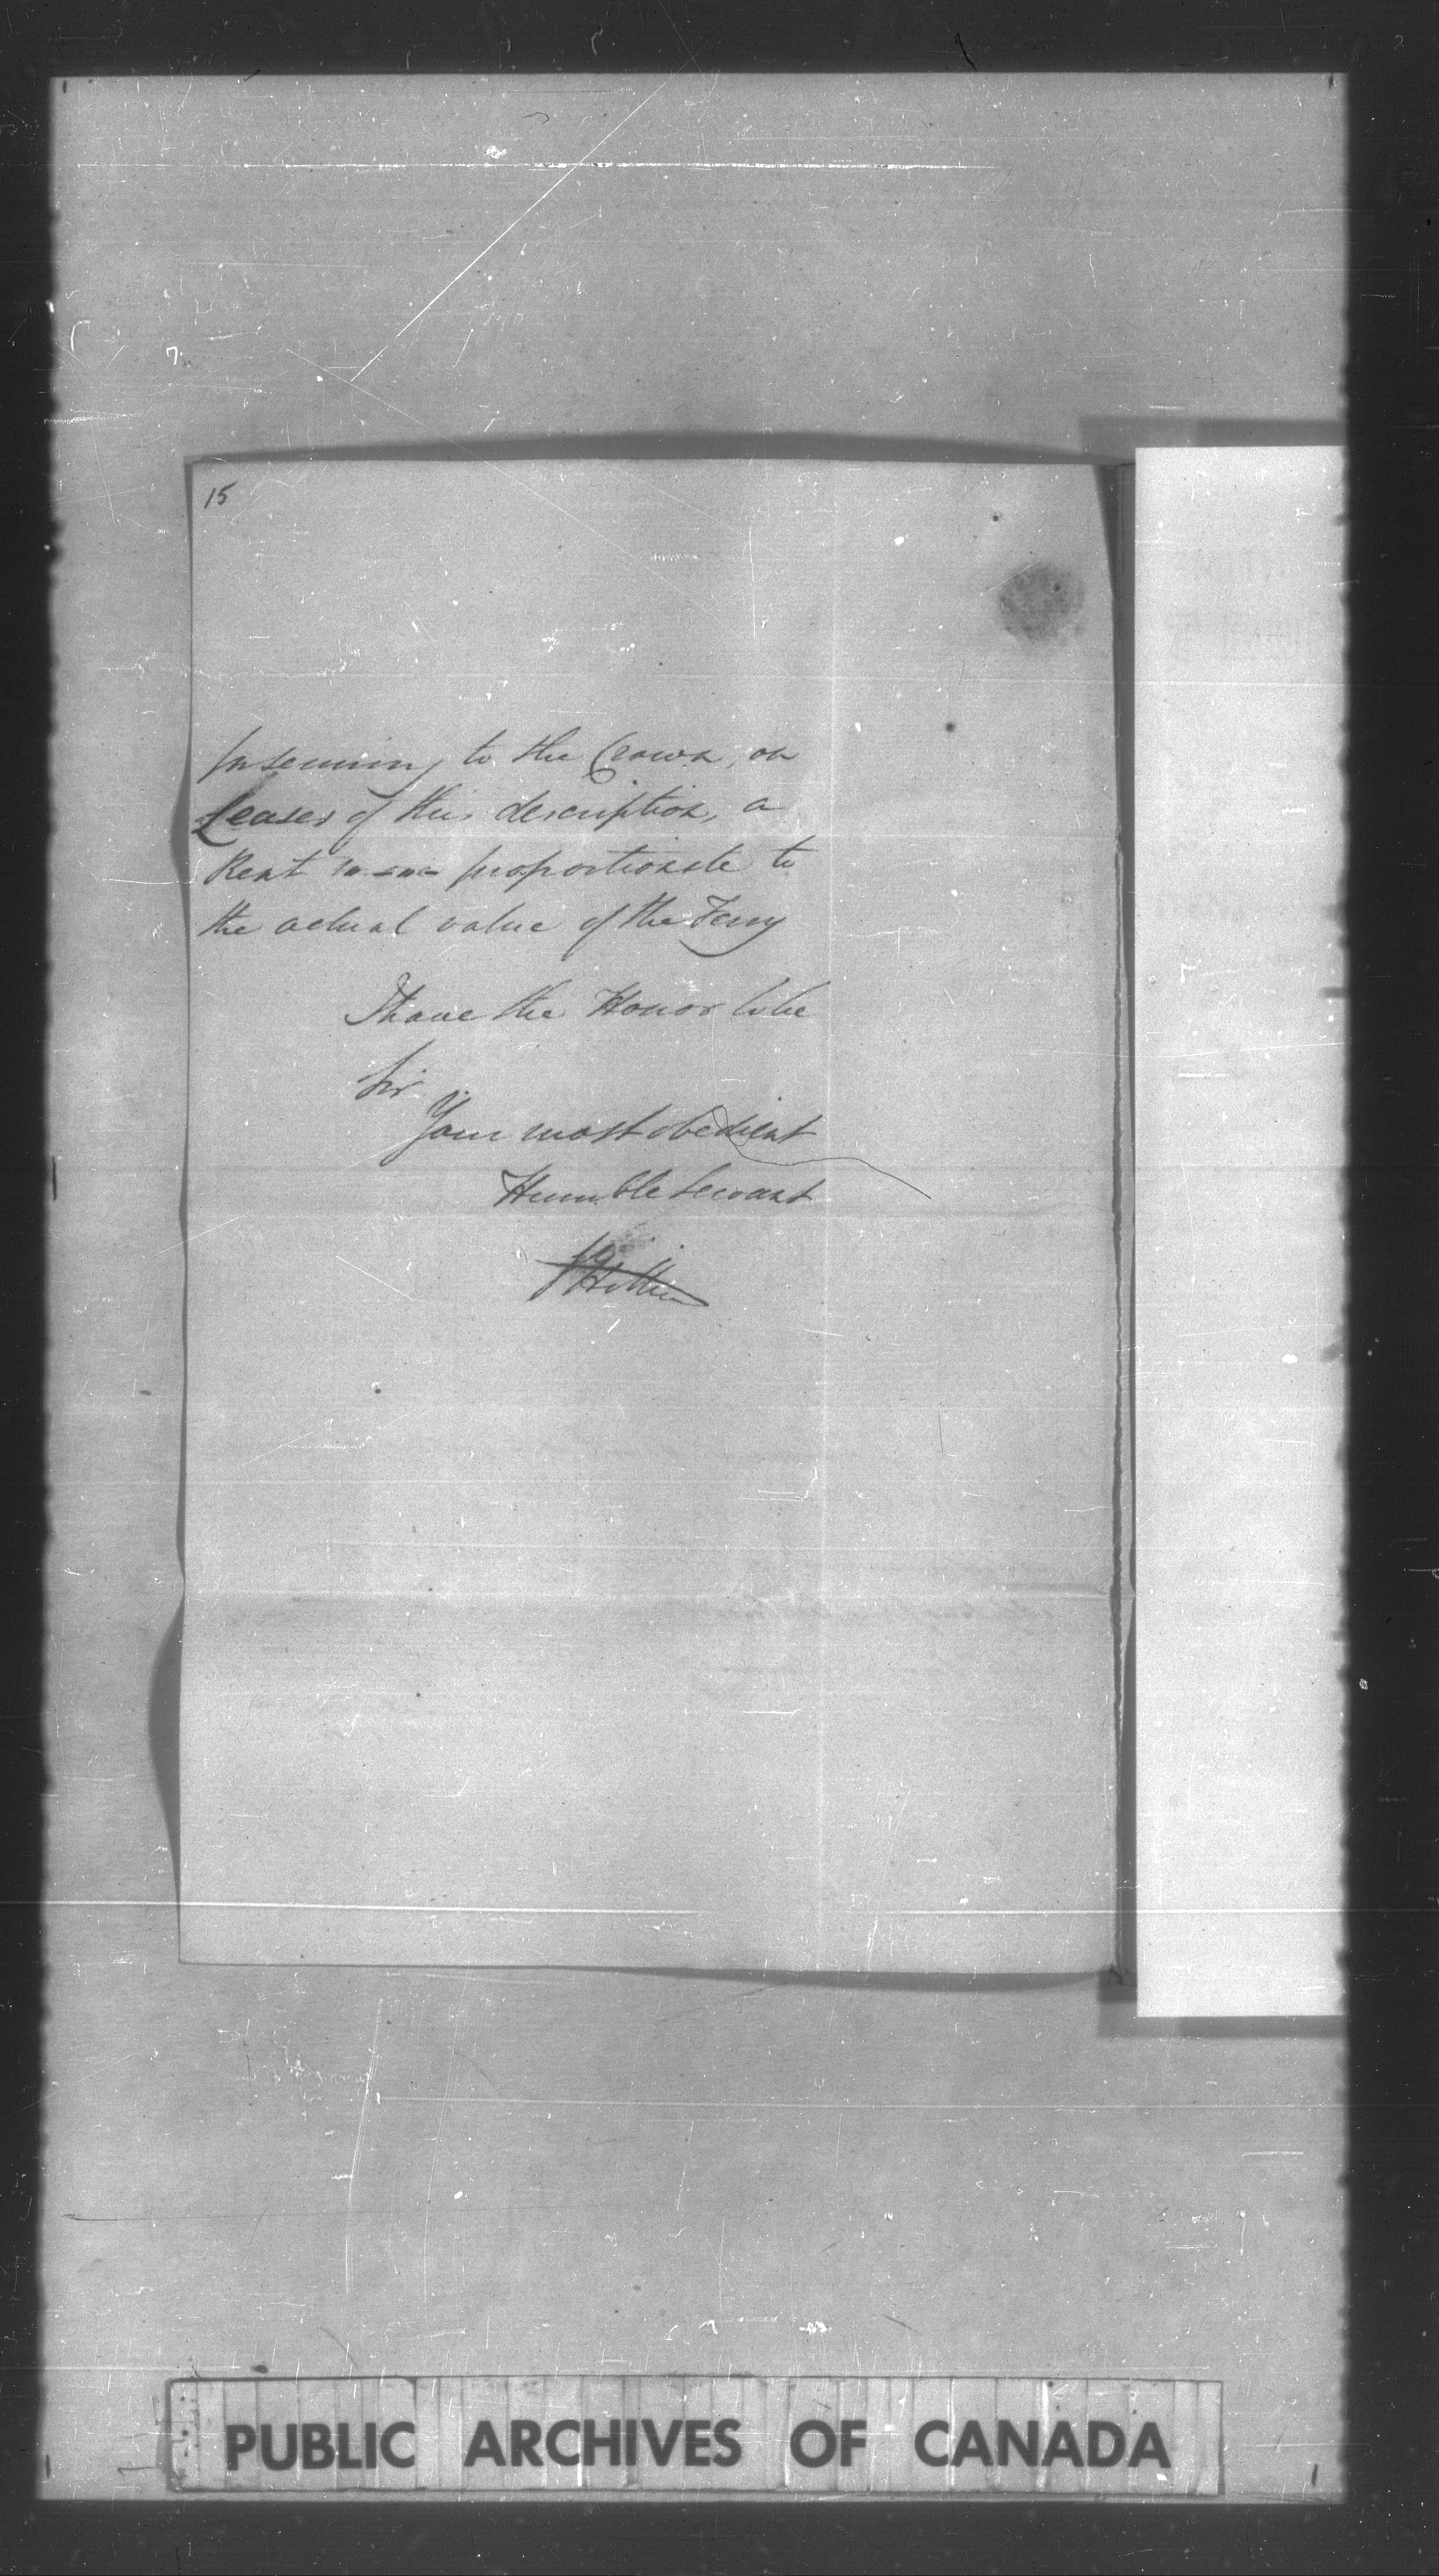 15
to the Crown, on
Leases of this description, a
Rent proportionate to
the actual value of the Ferry
I have the Honor to be
Sir
Your most obedient
Humble Servant
PUBLIC ARCHIVES OF CANADA